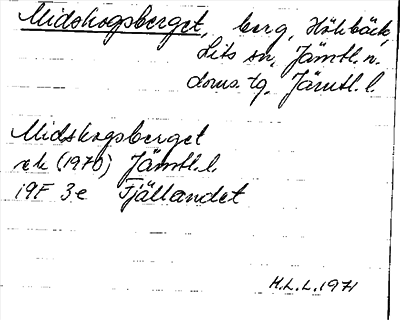 Midskogsberget, berg, Höhbäck,
Lits sn, Jämtl. n.
doms. tg, Jämtl. l.
Midskogsberget
ek (1970) Jämtl. l.
19F 3e Fjällandet
H.L.L. 1971